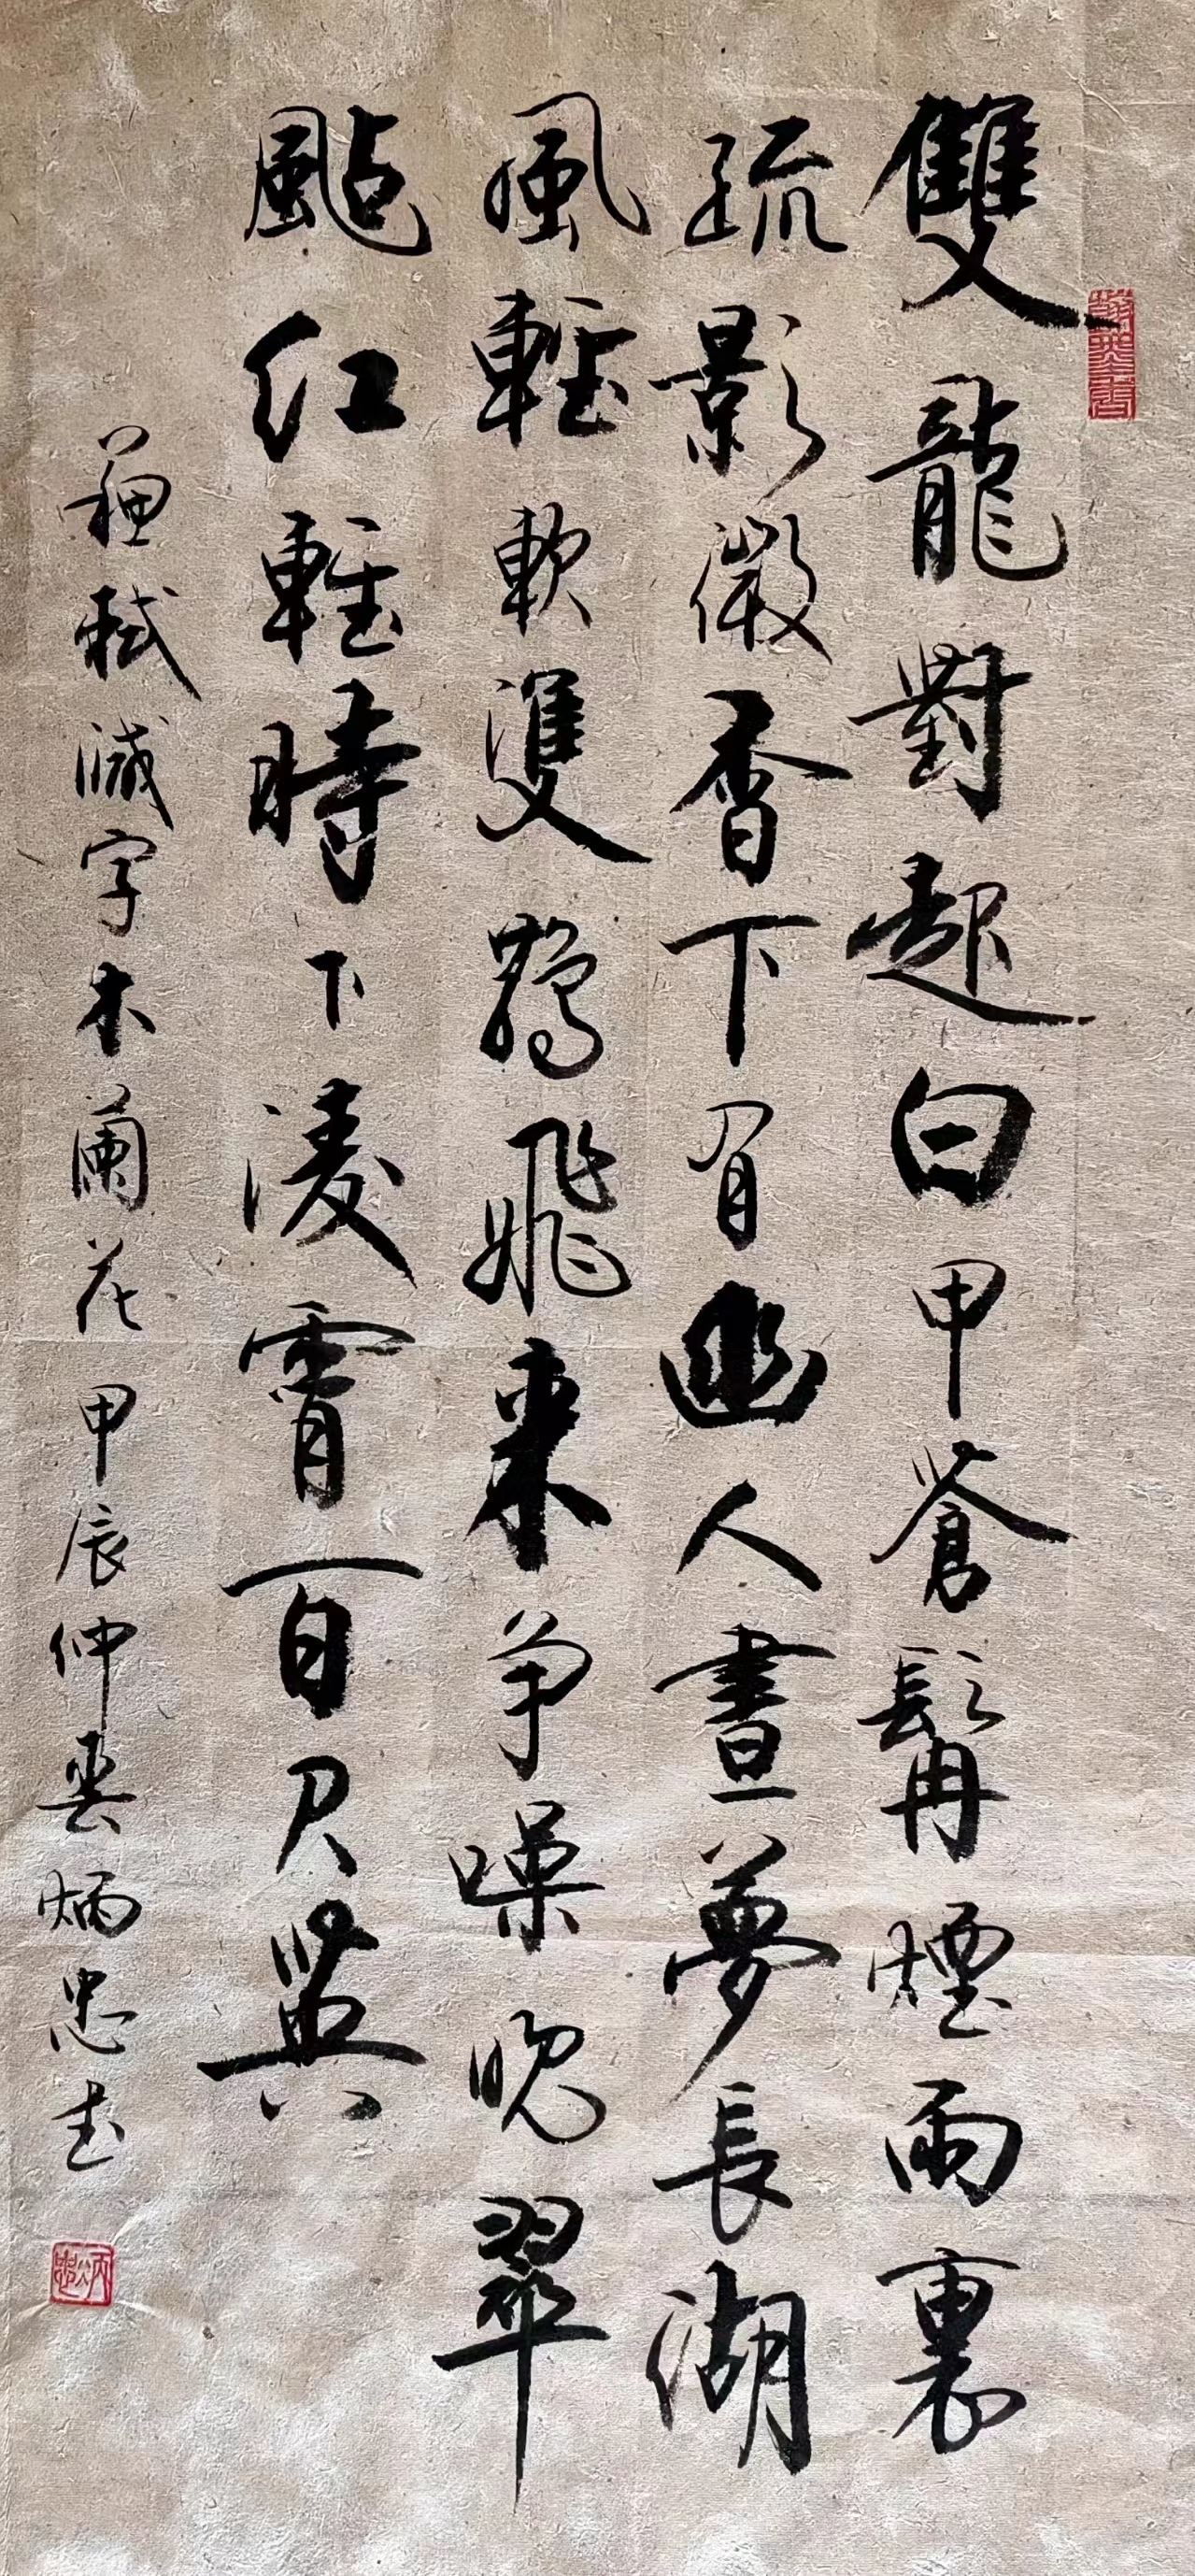 雙龍對起曰甲蒼髯煙雨裏
疏影微香下有幽人晝夢長湖
風輕軟雙鵲飛來争噪晚翠
颭紅輕時下淩霄百尺英
蘇軾減字木蘭花 甲辰仲春炳忠书
炳忠